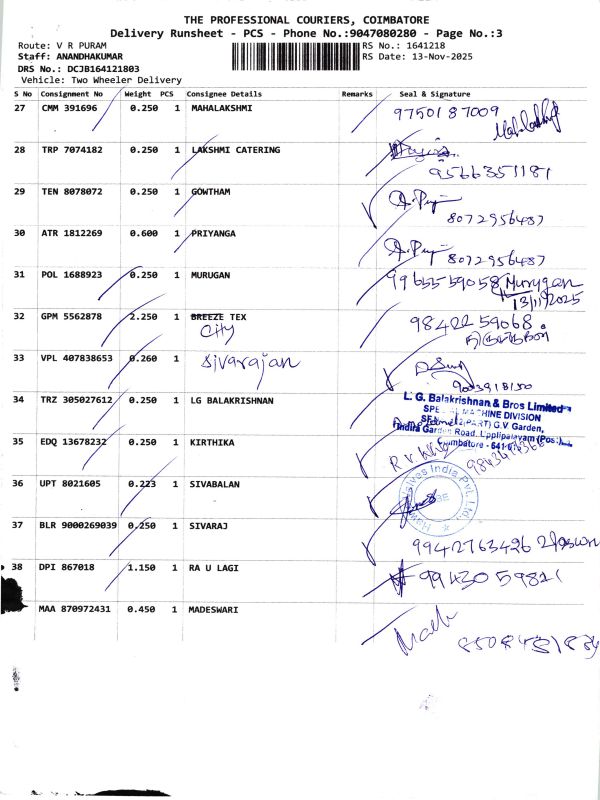 THE PROFESSIONAL COURIERS, COIMBATORE
Delivery Runsheet - PCS - Phone No.:9047080280 - Page No.:3
Route: V R PURAM RS No.: 1641218
Staff: ANANDHAKUMAR RS Date: 13-Nov-2025
DRS No.: DCJB164121803
Vehicle: Two Wheeler Delivery
S No Consignment No Weight PCS Consignee Details Remarks Seal & Signature
27 CMM 391696 0.250 1 MAHALAKSHMI 9750187009
28 TRP 7074182 0.250 1 LAKSHMI CATERING
9566351181
29 TEN 8078072 0.250 1 GOWTHAM
8072956487
30 ATR 1812269 0.600 1 PRIYANGA
8072956487
31 POL 1688923 0.250 1 MURUGAN 9965559058 Murugan
13/11/2025
32 GPM 5562878 2.250 1 BREEZE TEX 9842259068
CITY
33 VPL 407838653 0.260 1 Sivarajan
34 TRZ 305027612 0.250 1 LG BALAKRISHNAN L. G. Balakrishnan & Bros Limited
SPECIAL MACHINE DIVISION
(PART) G.V Garden,
Indira Garden Road, Upplipalayam (Post),
Coimbatore - 641
35 EDQ 13678232 0.250 1 KIRTHIKA
36 UPT 8021605 0.223 1 SIVABALAN
India Pvt. Ltd.
37 BLR 9000269039 0.250 1 SIVARAJ
9942763426
38 DPI 867018 1.150 1 RA U LAGI
MAA 870972431 0.450 1 MADESWARI